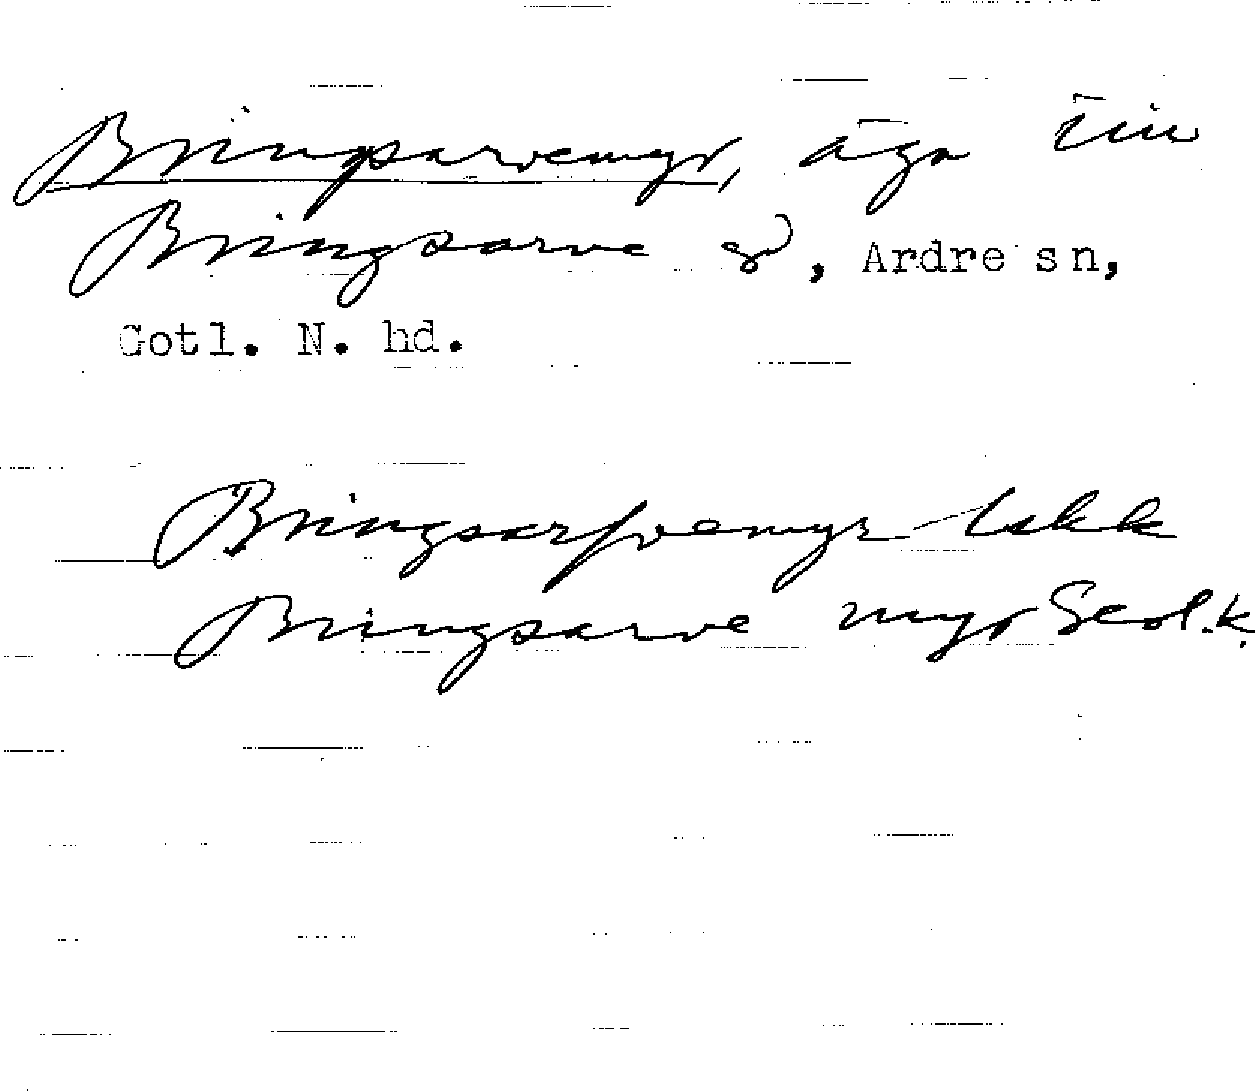 Bringsarvemyr, äga till
Bringsarve gd, Ardre sn,
Gotl. N. hd.
Bringsarfvemyr Lskk
Bringsarve myr Geol.k.